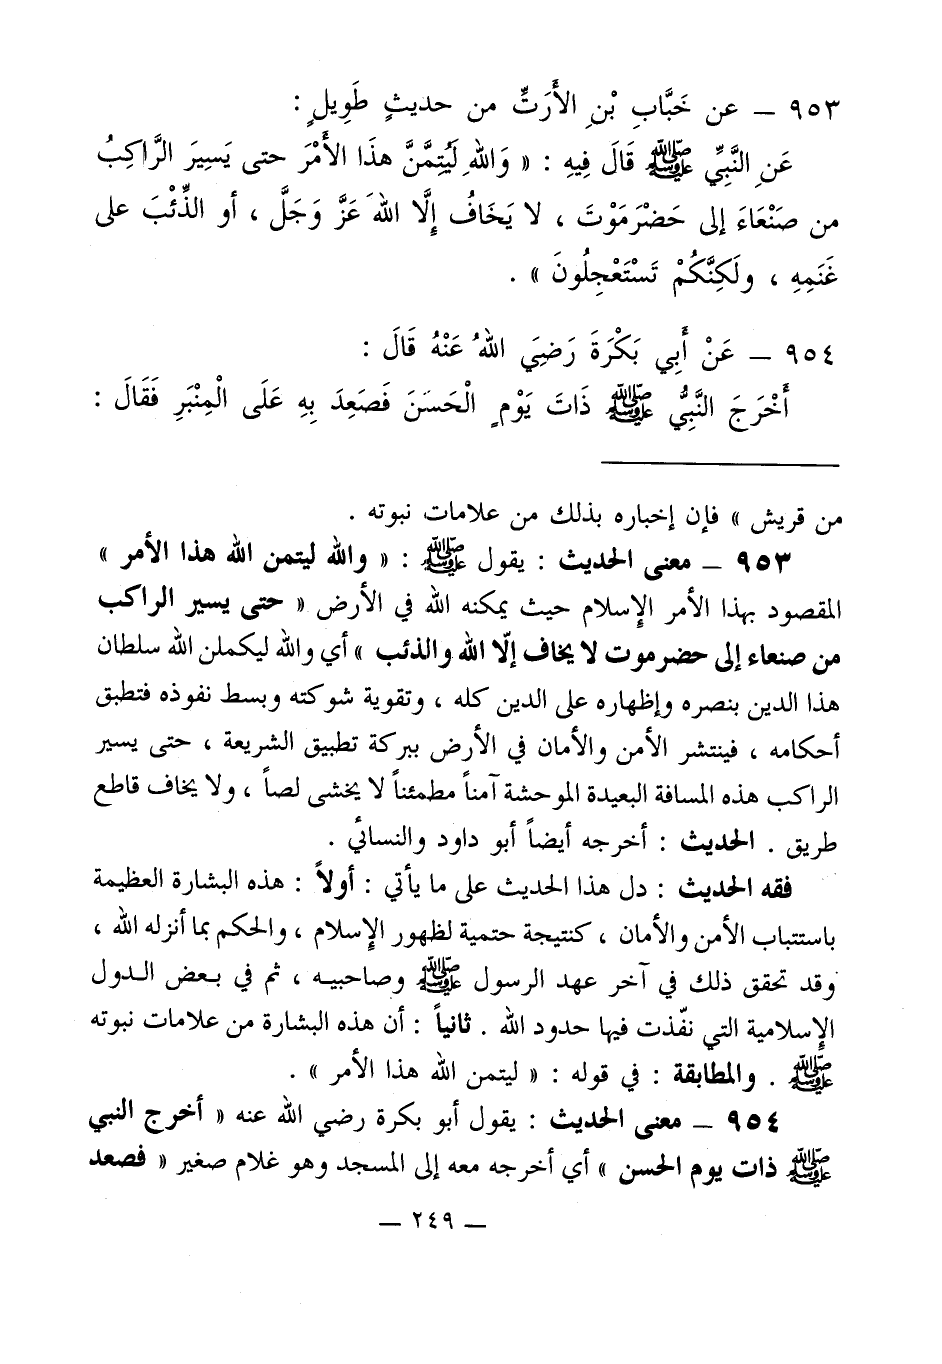 ٩٥٣ ــ عن خَبَّابِ بْنِ الأَرَتِّ من حديثٍ طَوِيلٍ :
عَنِ النَّبِيِّ ﷺ قَالَ فِيهِ : « وَاللهِ لَيُتِمَّنَّ هذَا الأَمْرَ حتى يَسِيرَ الرَّاكِبُ
من صَنْعَاءَ إلى حَضْرَمَوْتَ ، لا يَخَافُ إلَّا اللهَ عَزَّ وَجَلَّ ، أو الذِّئْبَ على
غَنَمِهِ ، ولَكِنَّكُمْ تَسْتَعْجِلُونَ » .
٩٥٤ ــ عَنْ أَبِي بَكْرَةَ رَضِيَ اللهُ عَنْهُ قَالَ :
أَخْرَجَ النَّبِيُّ ﷺ ذَاتَ يَوْمٍ الْحَسَنَ فَصَعِدَ بِهِ عَلَى الْمِنْبَرِ فَقَالَ :
من قريش » فإن إخباره بذلك من علامات نبوته .
٩٥٣ ــ معنى الحديث : يقول ﷺ : « والله ليتمن الله هذا الأمر »
المقصود بهذا الأمر الإسلام حيث يمكنه الله في الأرض « حتى يسير الراكب
من صنعاء إلى حضرموت لا يخاف إلّا الله والذئب » أي والله ليكملن الله سلطان
هذا الدين بنصره وإظهاره على الدين كله ، وتقوية شوكته وبسط نفوذه فتطبق
أحكامه ، فينتشر الأمن والأمان في الأرض ببركة تطبيق الشريعة ، حتى يسير
الراكب هذه المسافة البعيدة الموحشة آمناً مطمئناً لا يخشى لصاً ، ولا يخاف قاطع
طريق . الحديث : أخرجه أيضاً أبو داود والنسائي .
فقه الحديث : دل هذا الحديث على ما يأتي : أولاً : هذه البشارة العظيمة
باستتباب الأمن والأمان ، كنتيجة حتمية لظهور الإسلام ، والحكم بما أنزله الله ،
وقد تحقق ذلك في آخر عهد الرسول ﷺ وصاحبيه ، ثم في بعض الدول
الإسلامية التي نفّذت فيها حدود الله . ثانياً : أن هذه البشارة من علامات نبوته
ﷺ . والمطابقة : في قوله : « ليتمن الله هذا الأمر » .
٩٥٤ ــ معنى الحديث : يقول أبو بكرة رضي الله عنه « أخرج النبي
ﷺ ذات يوم الحسن » أي أخرجه معه إلى المسجد وهو غلام صغير « فصعد
ــ ٢٤٩ ــ